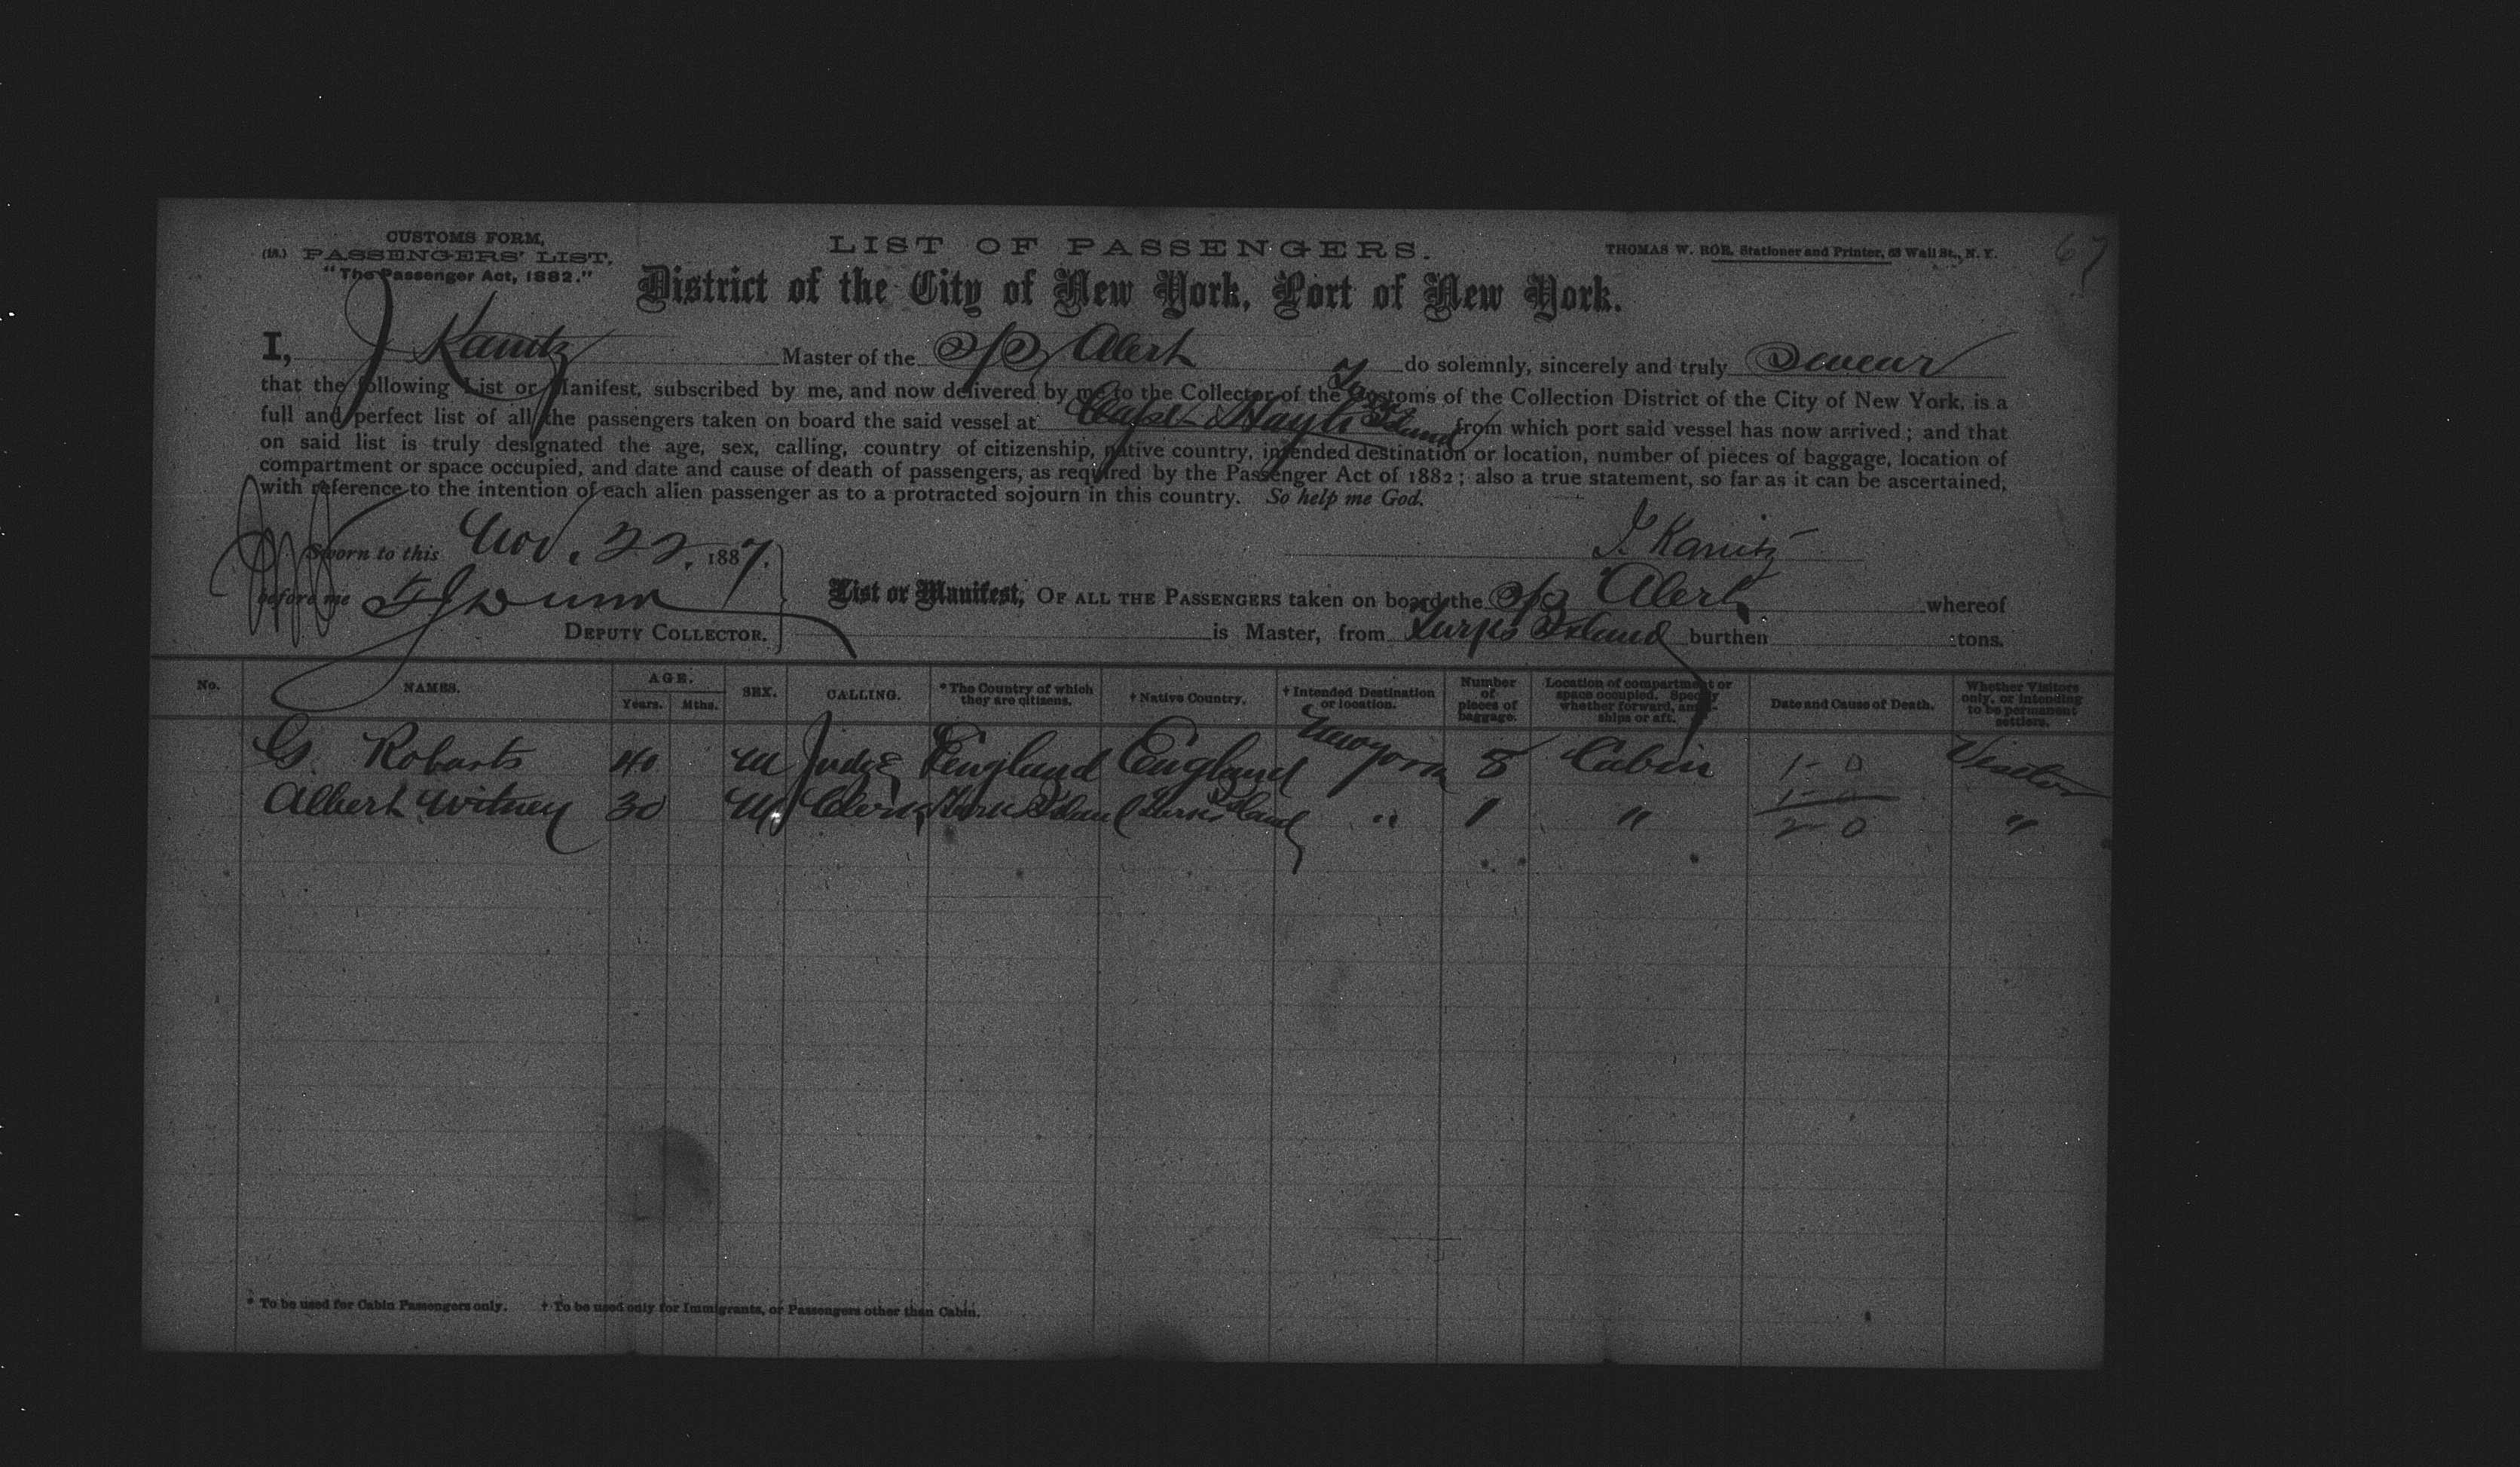 67
CUSTOMS FORM,
(18.) PASSENGERS' LIST,
"The Passenger Act, 1882."
LIST OF PASSENGERS.
THOMAS W. ROE, Stationer and Printer, 63 Wall St., N. Y.
District of the City of New York, Port of New York.
I, J Kanitz Master of the S/S Alert do solemnly, sincerely and truly Swear
that the following List or Manifest, subscribed by me, and now delivered by me to the Collector of the Customs of the Collection District of the City of New York, is a
full and perfect list of all the passengers taken on board the said vessel at Cape Hayti Island from which port said vessel has now arrived; and that
on said list is truly designated the age, sex, calling, country of citizenship, native country, intended destination or location, number of pieces of baggage, location of
compartment or space occupied, and date and cause of death of passengers, as required by the Passenger Act of 1882; also a true statement, so far as it can be ascertained,
with reference to the intention of each alien passenger as to a protracted sojourn in this country. So help me God.
Sworn to this Nov. 22, 1887.
J. Kanitz
before me Dunn
DEPUTY COLLECTOR.
List or Manifest, OF ALL THE PASSENGERS taken on board the S/S Alert whereof
is Master, from Turks Island burthen tons.
No. NAMES. AGE. Years. Mths. SEX. CALLING. * The Country of which they are citizens. † Native Country. † Intended Destination or location. Number of pieces of baggage. Location of compartment or space occupied. Specify whether forward, amidships or aft. Date and Cause of Death. Whether Visitors only, or intending to be permanent settlers.
G. Robarts 40 M Judge England England New York 8 Cabin 1-0 Visitor
Albert Witney 30 M Clerk Turk Island Turk Island " 1 " 1-0 "
2-0
* To be used for Cabin Passengers only. † To be used only for Immigrants, or Passengers other than Cabin.